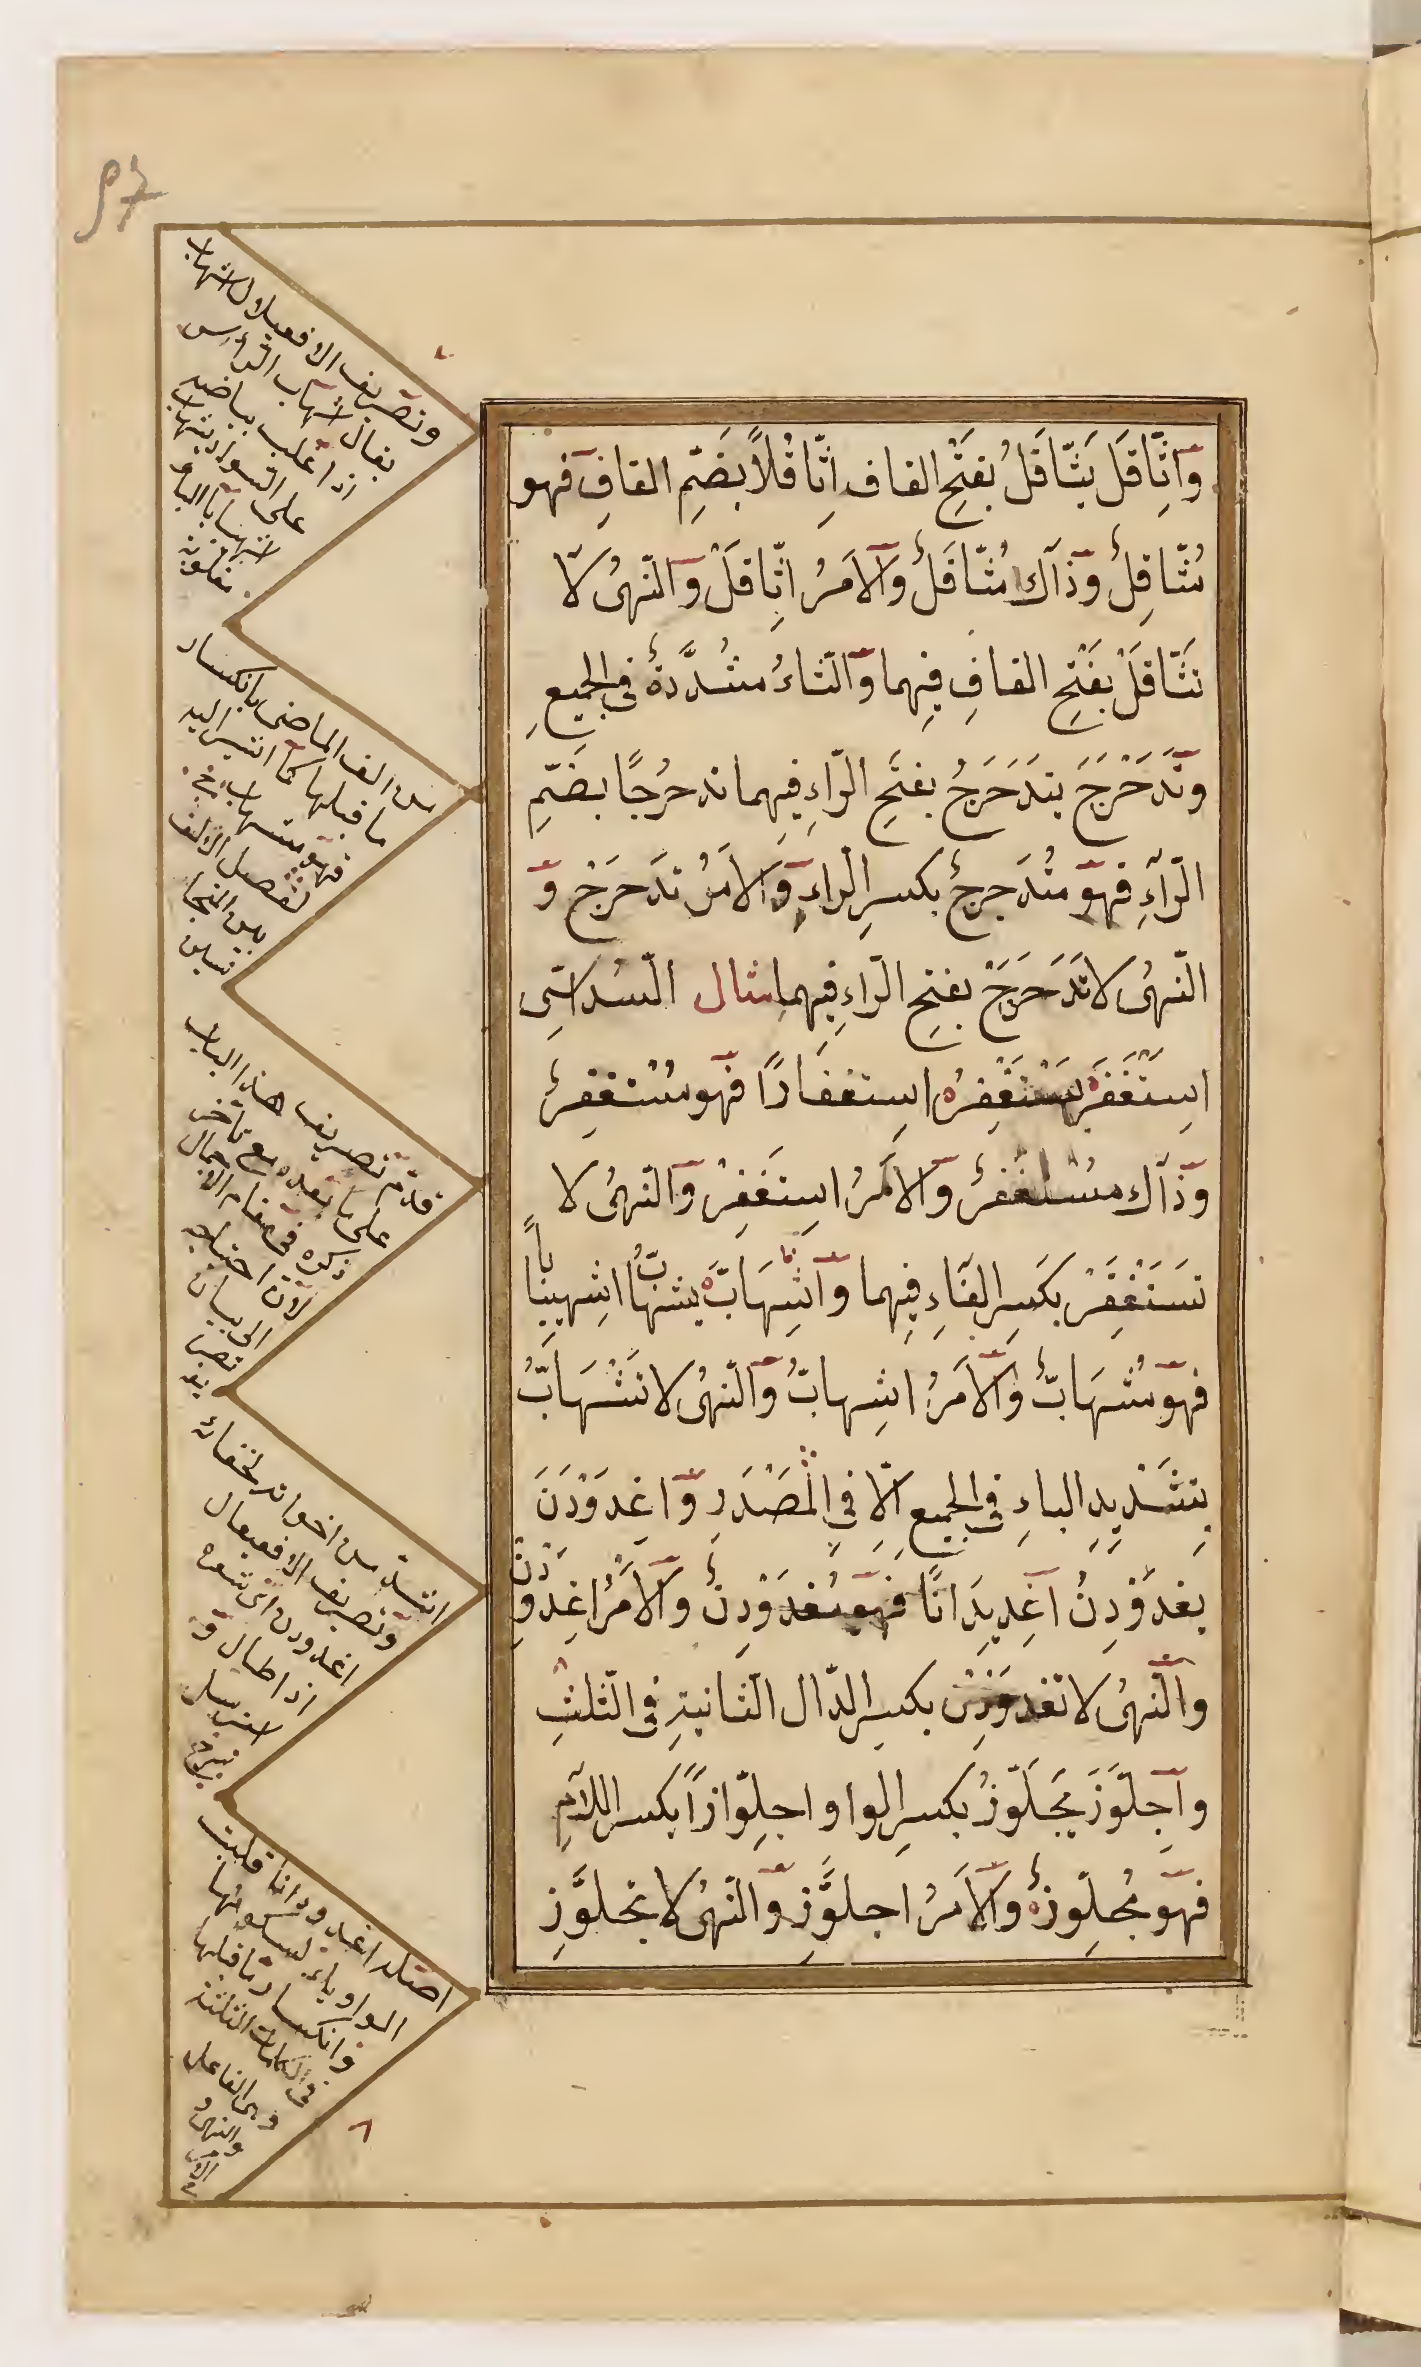 وَاثَّاقَلَ يَثَّاقَلُ بفَتْحِ القاف اِثَّاقُلاً بِضَمِّ القافِ فهو
مُثَّاقِلٌ وَذَاكَ مُثَّاقَلٌ وَالاَمرُ اثَّاقَلْ وَالنّهىُ لا
تَثَّاقَلْ بفَتْحِ القافِ فِيهما وَالثاءُ مشُدَّدةٌ فى الجميعِ
وتَدَحْرَجَ يتدَحَرَجُ بفتَحِ الرّاءِ فِيهما تدحرُجًا بضمِّ
الرّاءِ فهوَ متُدَحرِجٌ بكسرِ الراءِ وَالاَمرُ تدَحرَجْ وَ
النّهىُ لا تدَحَرَجْ بفتحِ الرّاءِ فِيهما مثال السُداسّى
اِستَغْفَرَه يَستَغْفِرُه اِستغفَارًا فهَو مُسْتغفِرٌ
وَذَاكَ مسُتَغْفَرٌ وَالاَمرُ استَغفِرْ وَالنّهىُ لا
تسَتَغْفِرْ بكَسِر الفَاءِ فِيهما وَاَشِهَابَّ يشهَابُّ اشِهِيبَابًا
فهوَ مُشهَابٌّ وَالاَمَرُ اشِهابَّ وَالنّهىُ لا تَشْهَابَّ
بِتشَديِدِ الباءِ فى الجميعِ الّا فى الْمصَدَرِ وَاغدَوْدَنَ
يغدَوْدِنُ اغدِيدَانًا فهوَ مُغدَوْدِنٌ وَالاَمْرُ اغدَوْدِنْ
وَالنّهىُ لا تغدَودِنْ بكسِر الدّال الثّانيةِ فى الثّلثِ
وَاَجلَوَّزَ يَجَلَوِّزُ بكسِر الواو اجلِوّازًا بكسر اللّامِ
فهوَ مُجلوِّزٌ وَالاَمرُ اجلوَّز وَالنّهىُ لا تجلوَّزِ
وتصريف الافعيلال اشهاب
يقال اشهاب الرأس
اذا غلب بياضه
على السواد يشهاب
اشهيبابا الياء
مقلوبة
من الف الماضى بانكسار
ما قبلها كما اشير اليه
فهو مشهاب
لفصل الالف
بين المتجا
نسين
قدّم تصريف هذا الباب
على ما بعده مع تأخر
ذكره فى مقام الاجمال
لان احتياجه
الى بيان
تصر
يفه
اشدّ من اخواته لخفائه
وتصريف الافعيعال
اغدودن اى شعره
اذا طال و
استرسل
اصله اغدودانا قلبت
الواو ياء لسكونها
وانكسار ما قبلها
فى الكلمات الثلثة
وهى الفاعل
والنهى و
الامر